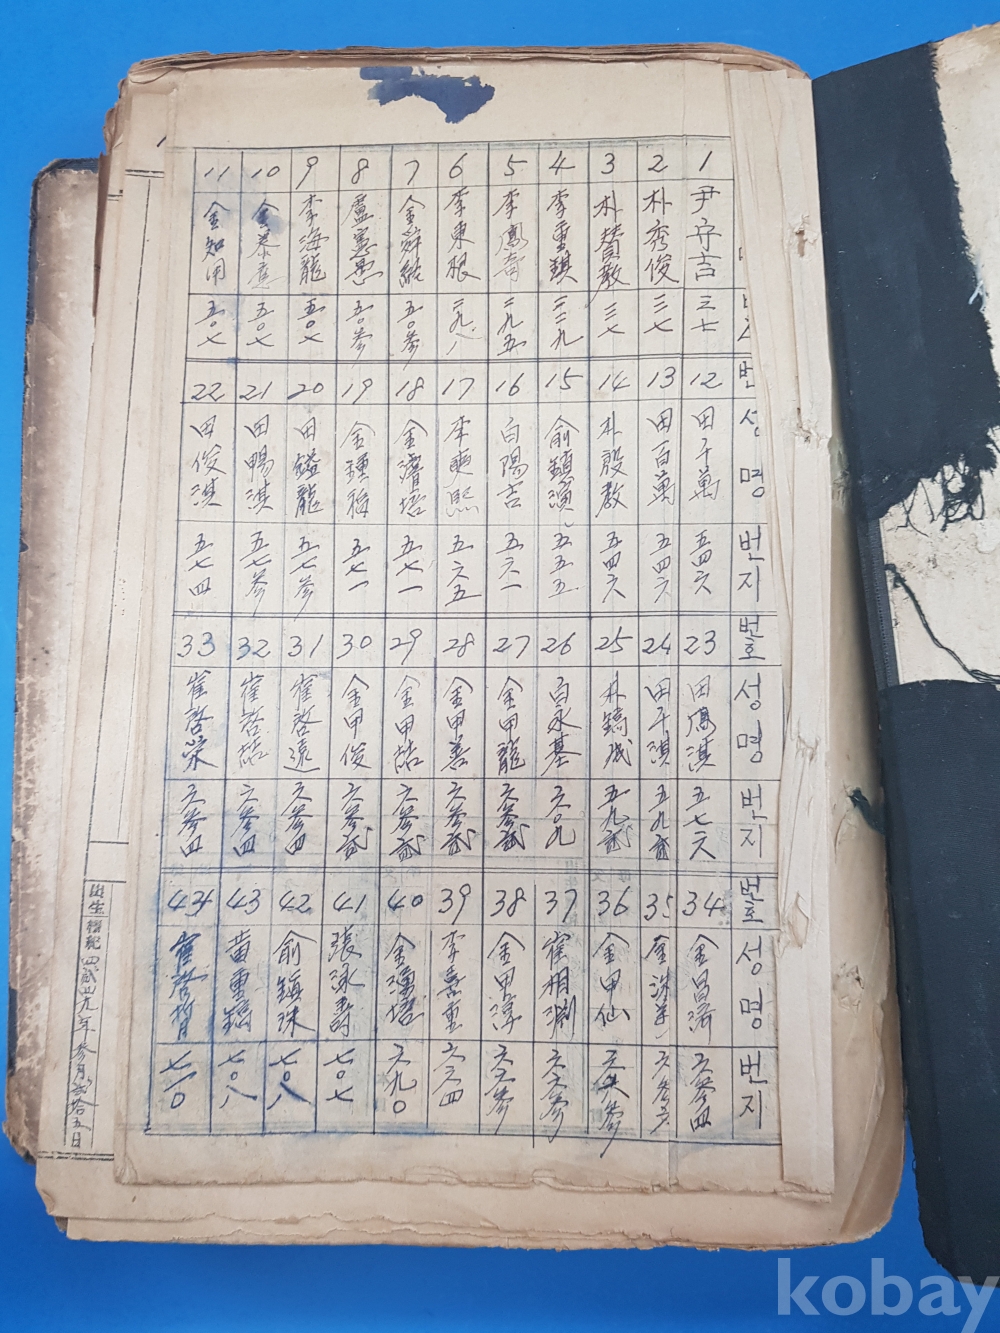 1 尹守吉 三七
2 朴秀俊 三七
3 朴賛敎 三七
4 李重琪 二二九
5 李鳳奇 二九五
6 李東根 二九八
7 金 五〇參
8 盧憲愚 五〇參
9 李海龍 五〇七
10 金泰 五〇七
11 金知用 五〇七
번
12 田千萬 五四六
13 田百萬 五四六
14 朴殷敎 五四六
15 兪鎭濱 五五五
16 白陽吉 五六一
17 李爽熙 五六五
18 金濬培 五七一
19 金鍾 五七一
20 田鎰龍 五七參
21 田暢淇 五七參
22 田俊淇 五七四
번호 성명 번지
23 田鳳淇 五七六
24 田千淇 五九貳
25 朴鎬成 五九貳
26 白永基 六〇九
27 金甲龍 六參貳
28 金甲善 六參貳
29 金甲喆 六參貳
30 金甲俊 六參貳
31 崔啓遠 六參四
32 崔啓喆 六參四
33 崔啓榮 六參四
번호 성명 번지
34 金昌濟 六參四
35 金洙
36 金甲仙
37 崔相淵 六六參
38 金甲淳 六六參
39 李喜重 六六四
40 金漢培 六九〇
41 張泳壽 七〇七
42 兪鎭珠 七〇八
43 黃重鎬 七〇八
44 崔啓晳 七一〇
번호 성명 번지
出生 檀紀四貳 九年參月貳拾五日
kobay